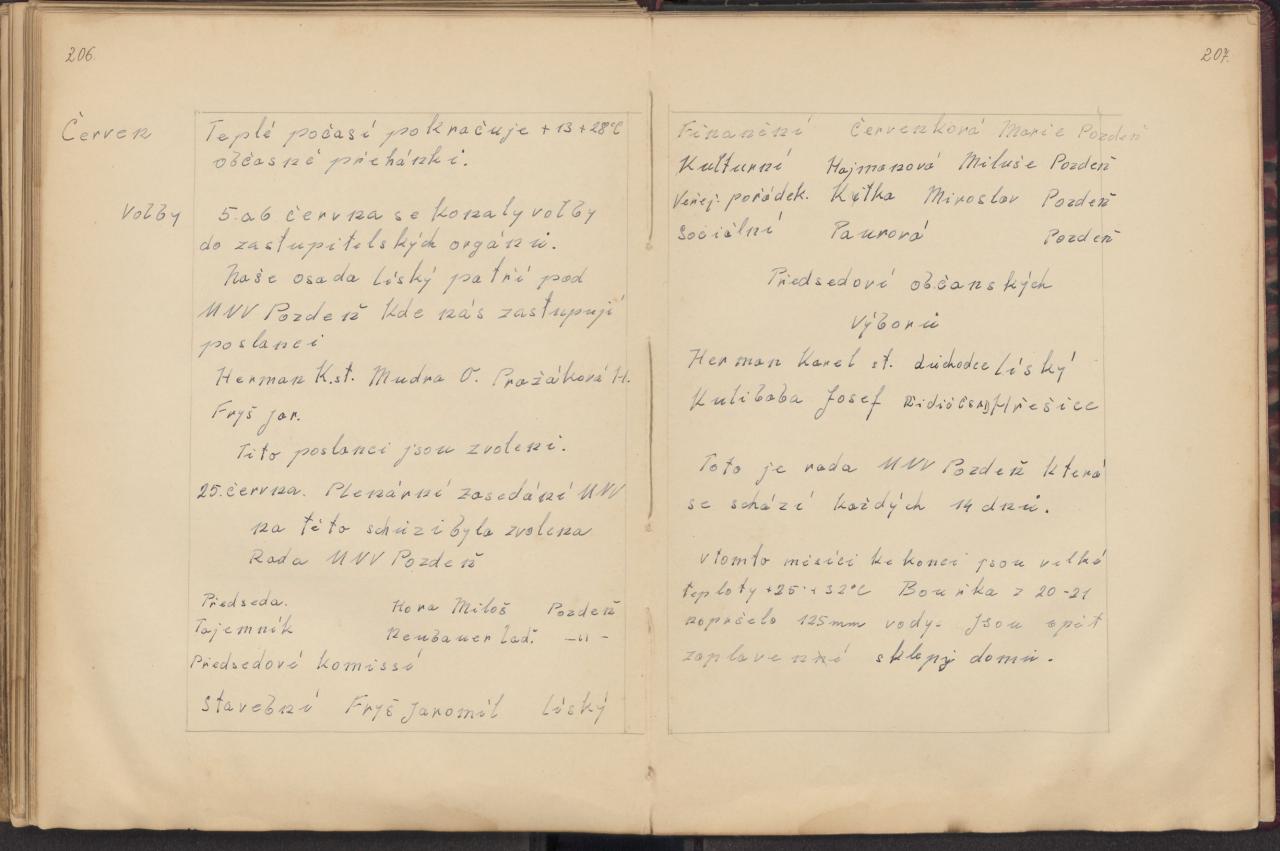 206.
Červen
Teplé počasí pokračuje +13+28°C
občasné přehánki.
Volby
5.a6 června se konaly volby
do zastupitelských orgánů.
Naše osada Líský patří pod
MNV Pozdeň kde nás zastupují
poslanci
Herman K.st. Mudra O. Pražáková H.
Fryš Jar.
Tito poslanci jsou zvoleni.
25.června. Plenární zasedání MNV
na této schůzi byla zvolena
Rada MNV Pozdeň
Předseda. Hora Miloš Pozdeň
Tajemník Neubauer Lad. -"-
Předsedové komissí
Stavební Fryš Jaromíl Líský
207.
Finanční Červenková Marie Pozdeň
Kulturní Hajmanová Miluše Pozdeň
Veřej. pořádek. Kytka Miroslav Pozdeň
Sociální Paurová Pozdeň
Předsedové občanských
Výborů
Herman Karel st. důchodce Líský
Kulibaba Josef Řidič ČSAD Hřešice
Toto je rada MNV Pozdeň která
se schází každých 14 dnů.
V tomto misíci ke konci jsou velké
teploty +25-+32°C Bouřka z 20-21
napršelo 125mm vody. Jsou opět
zaplavenní sklepy domů.